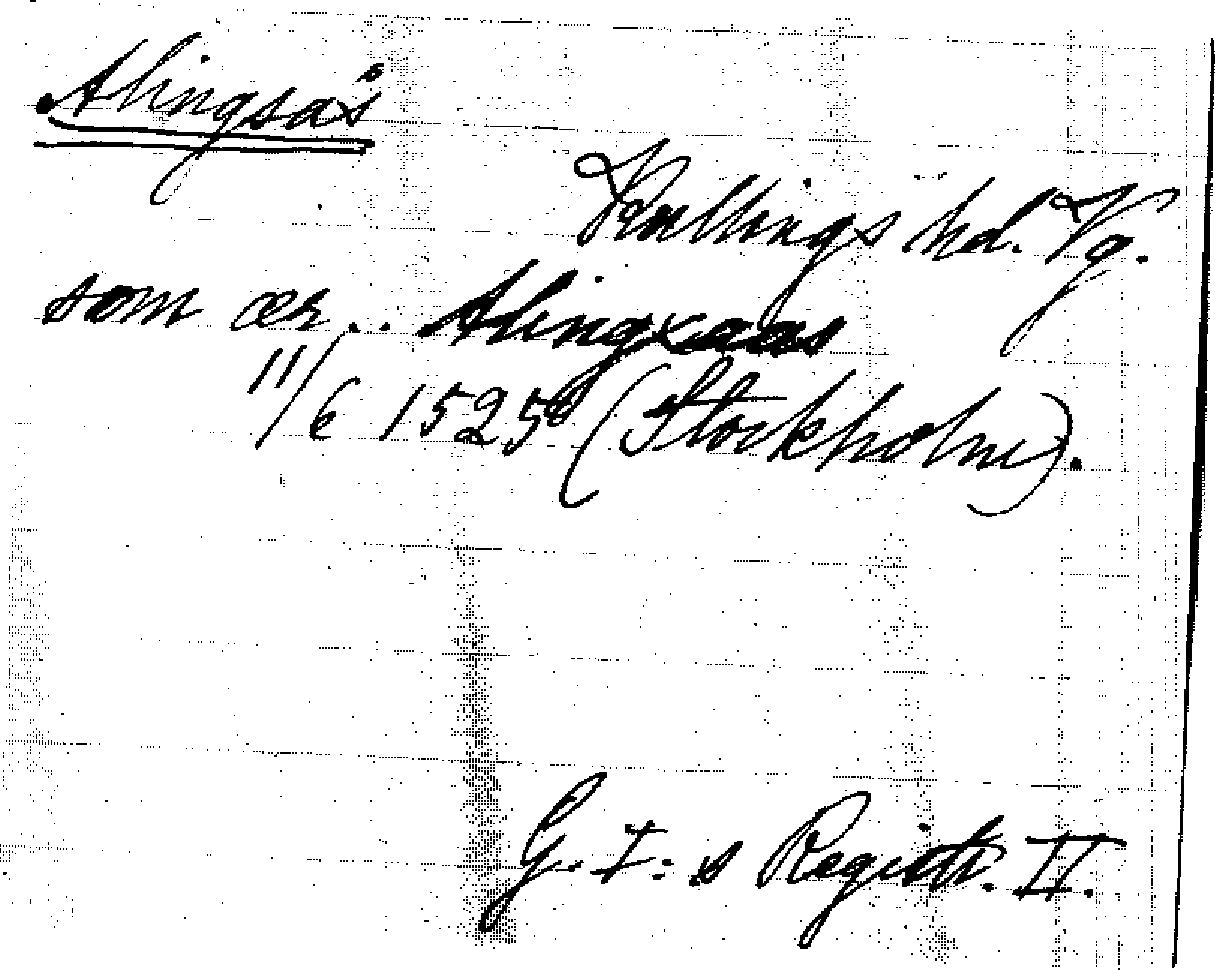 Alingsås
Kullings hd. Vg.
som ær.. Alingxaas
11/6 1525 (Stockholm).
G. I:s Registr. II.